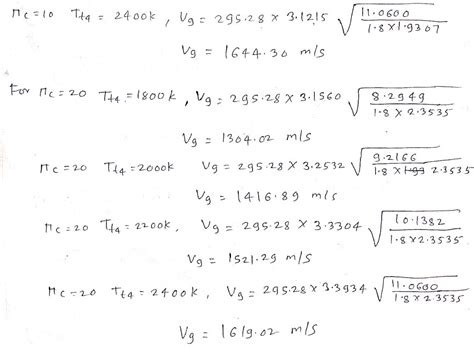 πc=10 Tt4 = 2400k , V9 = 295.28 × 3.1215 √(11.0600 / 1.8×1.9307)
V9 = 1644.30 m/s
For πc=20 Tt4 =1800k , V9 = 295.28 × 3.1560 √(8.2949 / 1.8 × 2.3535)
V9 = 1304.02 m/s
πc=20 Tt4 =2000k V9 = 295.28 × 3.2532 √(9.2166 / 1.8 × 2.3535)
V9 = 1416.89 m/s
πc=20 Tt4 = 2200k, V9 = 295.28 × 3.3304 √(10.1382 / 1.8 × 2.3535)
V9 = 1521.29 m/s
πc=20 Tt4 = 2400k, V9 = 295.28 × 3.3934 √(11.0600 / 1.8 × 2.3535)
V9 = 1619.02 m/s